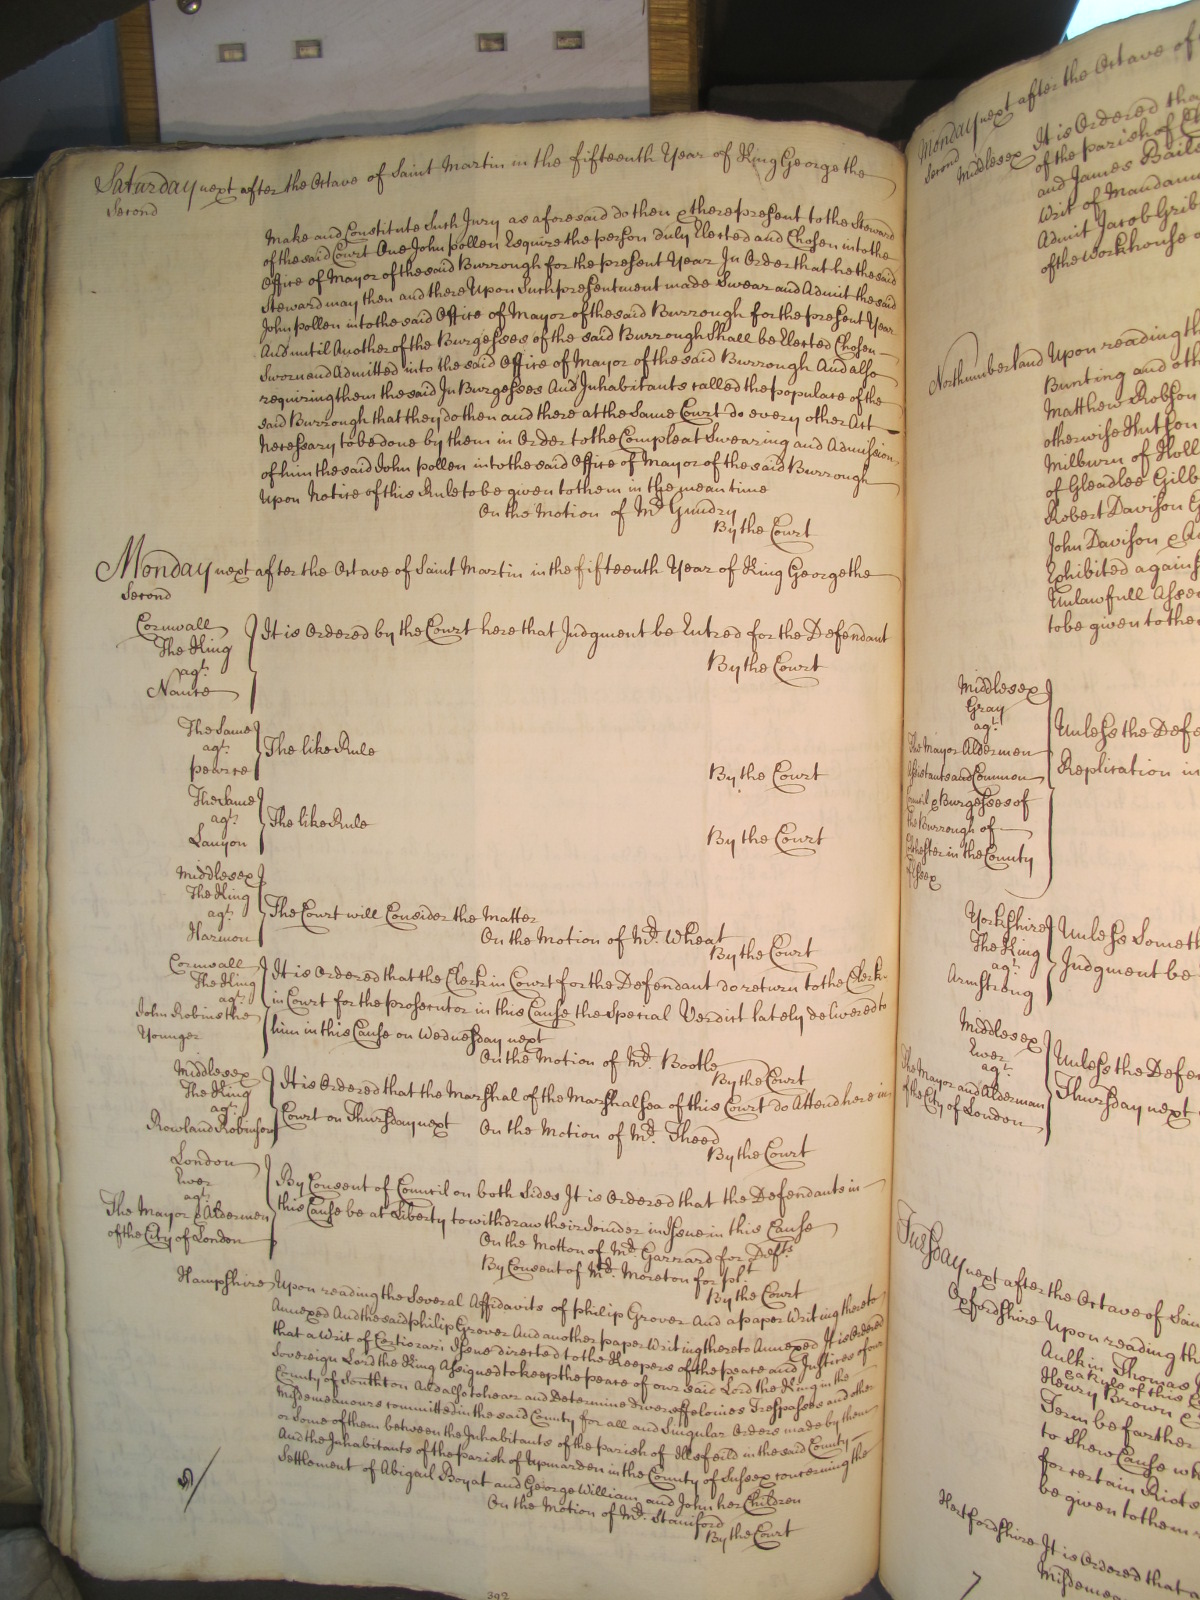 Saturday next after the Octave of Saint Martin in the fifteenth Year of King George the
Second
Make and Constitute Such Jury as aforesaid do then & there present to the Steward
of the said Court One John pollen Esquire the person duly Elected and Chosen into the
Office of Mayor of the said Burrough for the present Year In Order that he the said
Steward may then and there Upon Such presentment made Swear and Admit the said
John pollen into the said Office of Mayor of the said Burrough for the present Year
And until Another of the Burgesses of the said Burrough Shall be Elected Chosen
Sworn and Admitted into the said Office of Mayor of the said Burrough And also
requiring them the said In Burgesses And Inhabitants called the populace of the
said Burrough that they do then and there at the Same Court do every other Act
Necessary to be done by them in Order to the Compleat Swearing and Admission
of him the said John pollen into the said Office of Mayor of the said Burrough
Upon Notice of this Rule to be given to them in the mean time
On the Motion of Mr. Gundry
By the Court
Monday next after the Octave of Saint Martin in the fifteenth Year of King George the
Second
Cornwall
The King
agt.
Nance
It is Ordered by the Court here that Judgment be Entred for the Defendant
By the Court
The Same
agt.
pearce
The like Rule
By the Court
The Same
agt.
Lanyon
The like Rule
By the Court
Middlesex
The King
agt.
Harmon
The Court will Consider the Matter
On the Motion of Mr. Wheat
By the Court
Cornwall
The King
agt.
John Robins the
Younger
It is Ordered that the Clerk in Court for the Defendant do return to the Clerk
in Court for the prosecutor in this Cause the Special Verdict lately delivered to
him in this Cause on Wednesday next
On the Motion of Mr. Bootle
By the Court
Middlesex
The King
agt.
Rowland Robinson
It is Ordered that the Marshal of the Marshalsea of this Court do Attend here in
Court on Thursday next
On the Motion of Mr. Theed
By the Court
London
Ewer
agt.
The Mayor & Aldermen
of the City of London
By Consent of Council on both Sides It is Ordered that the Defendants in
this Cause be at Liberty to withdraw their Joinder in Issue in this Cause
On the Motion of Mr. Garrard for Defts.
By Consent of Mr. Moreton for plt.
By the Court
Hampshire Upon reading the Several Affidavits of philip Grover And a paper Writing thereto
Annexed And the said philip Grover And another paper Writing thereto Annexed It is Ordered
that a Writ of Certiorari Issue directed to the Keepers of the peace and Justices of our
Sovereign Lord the King Assigned to keep the peace of our said Lord the King in the
County of Southton And also to hear and Determine divers ffelonies Trespasses and other
Misdemeanours committed in the said County for all and Singular Orders made by them
or Some of them between the Inhabitants of the parish of in the said County
And the Inhabitants of the parish of Upmarden in the County of Sussex concerning the
Settlement of Abigail Boyat and George William and John her Children
On the Motion of Mr. Staniford
By the Court
392
Monday next after the Octave of
Second
Middlesex It is Ordered tha
of the parish of
and James Baile
Writ of Mandam
Admit Jacob Grib
of the Workhouse
Northumberland Upon reading th
Bunting and oth
Matthew Robson
otherwise Hutson
Milburn of Holl
of Gleadlee Gilb
Robert Davison
John Davison &
Exhibited agains
Unlawfull Asse
to be given to the
Middlesex
Gray
agt.
The Mayor Aldermen
Assistants and Common
Council & Burgesses of
the Burrough of
Colchester in the County
of Essex
Unless the Defe
Replication in
Yorkshire
The King
agt.
Armstrong
Unless Someth
Judgment be
Middlesex
Ewer
agt.
The Mayor and Alderman
of the City of London
Unless the Defen
Thursday next
Tuesday next after the Octave of Sain
Oxfordshire Upon reading th
Aulkin Thomas
a Rule of this
Henry Brown
Term be farther
to Shew Cause wh
for certain Riots
be given to them
Hertfordshire It is Ordered that
Misdemea